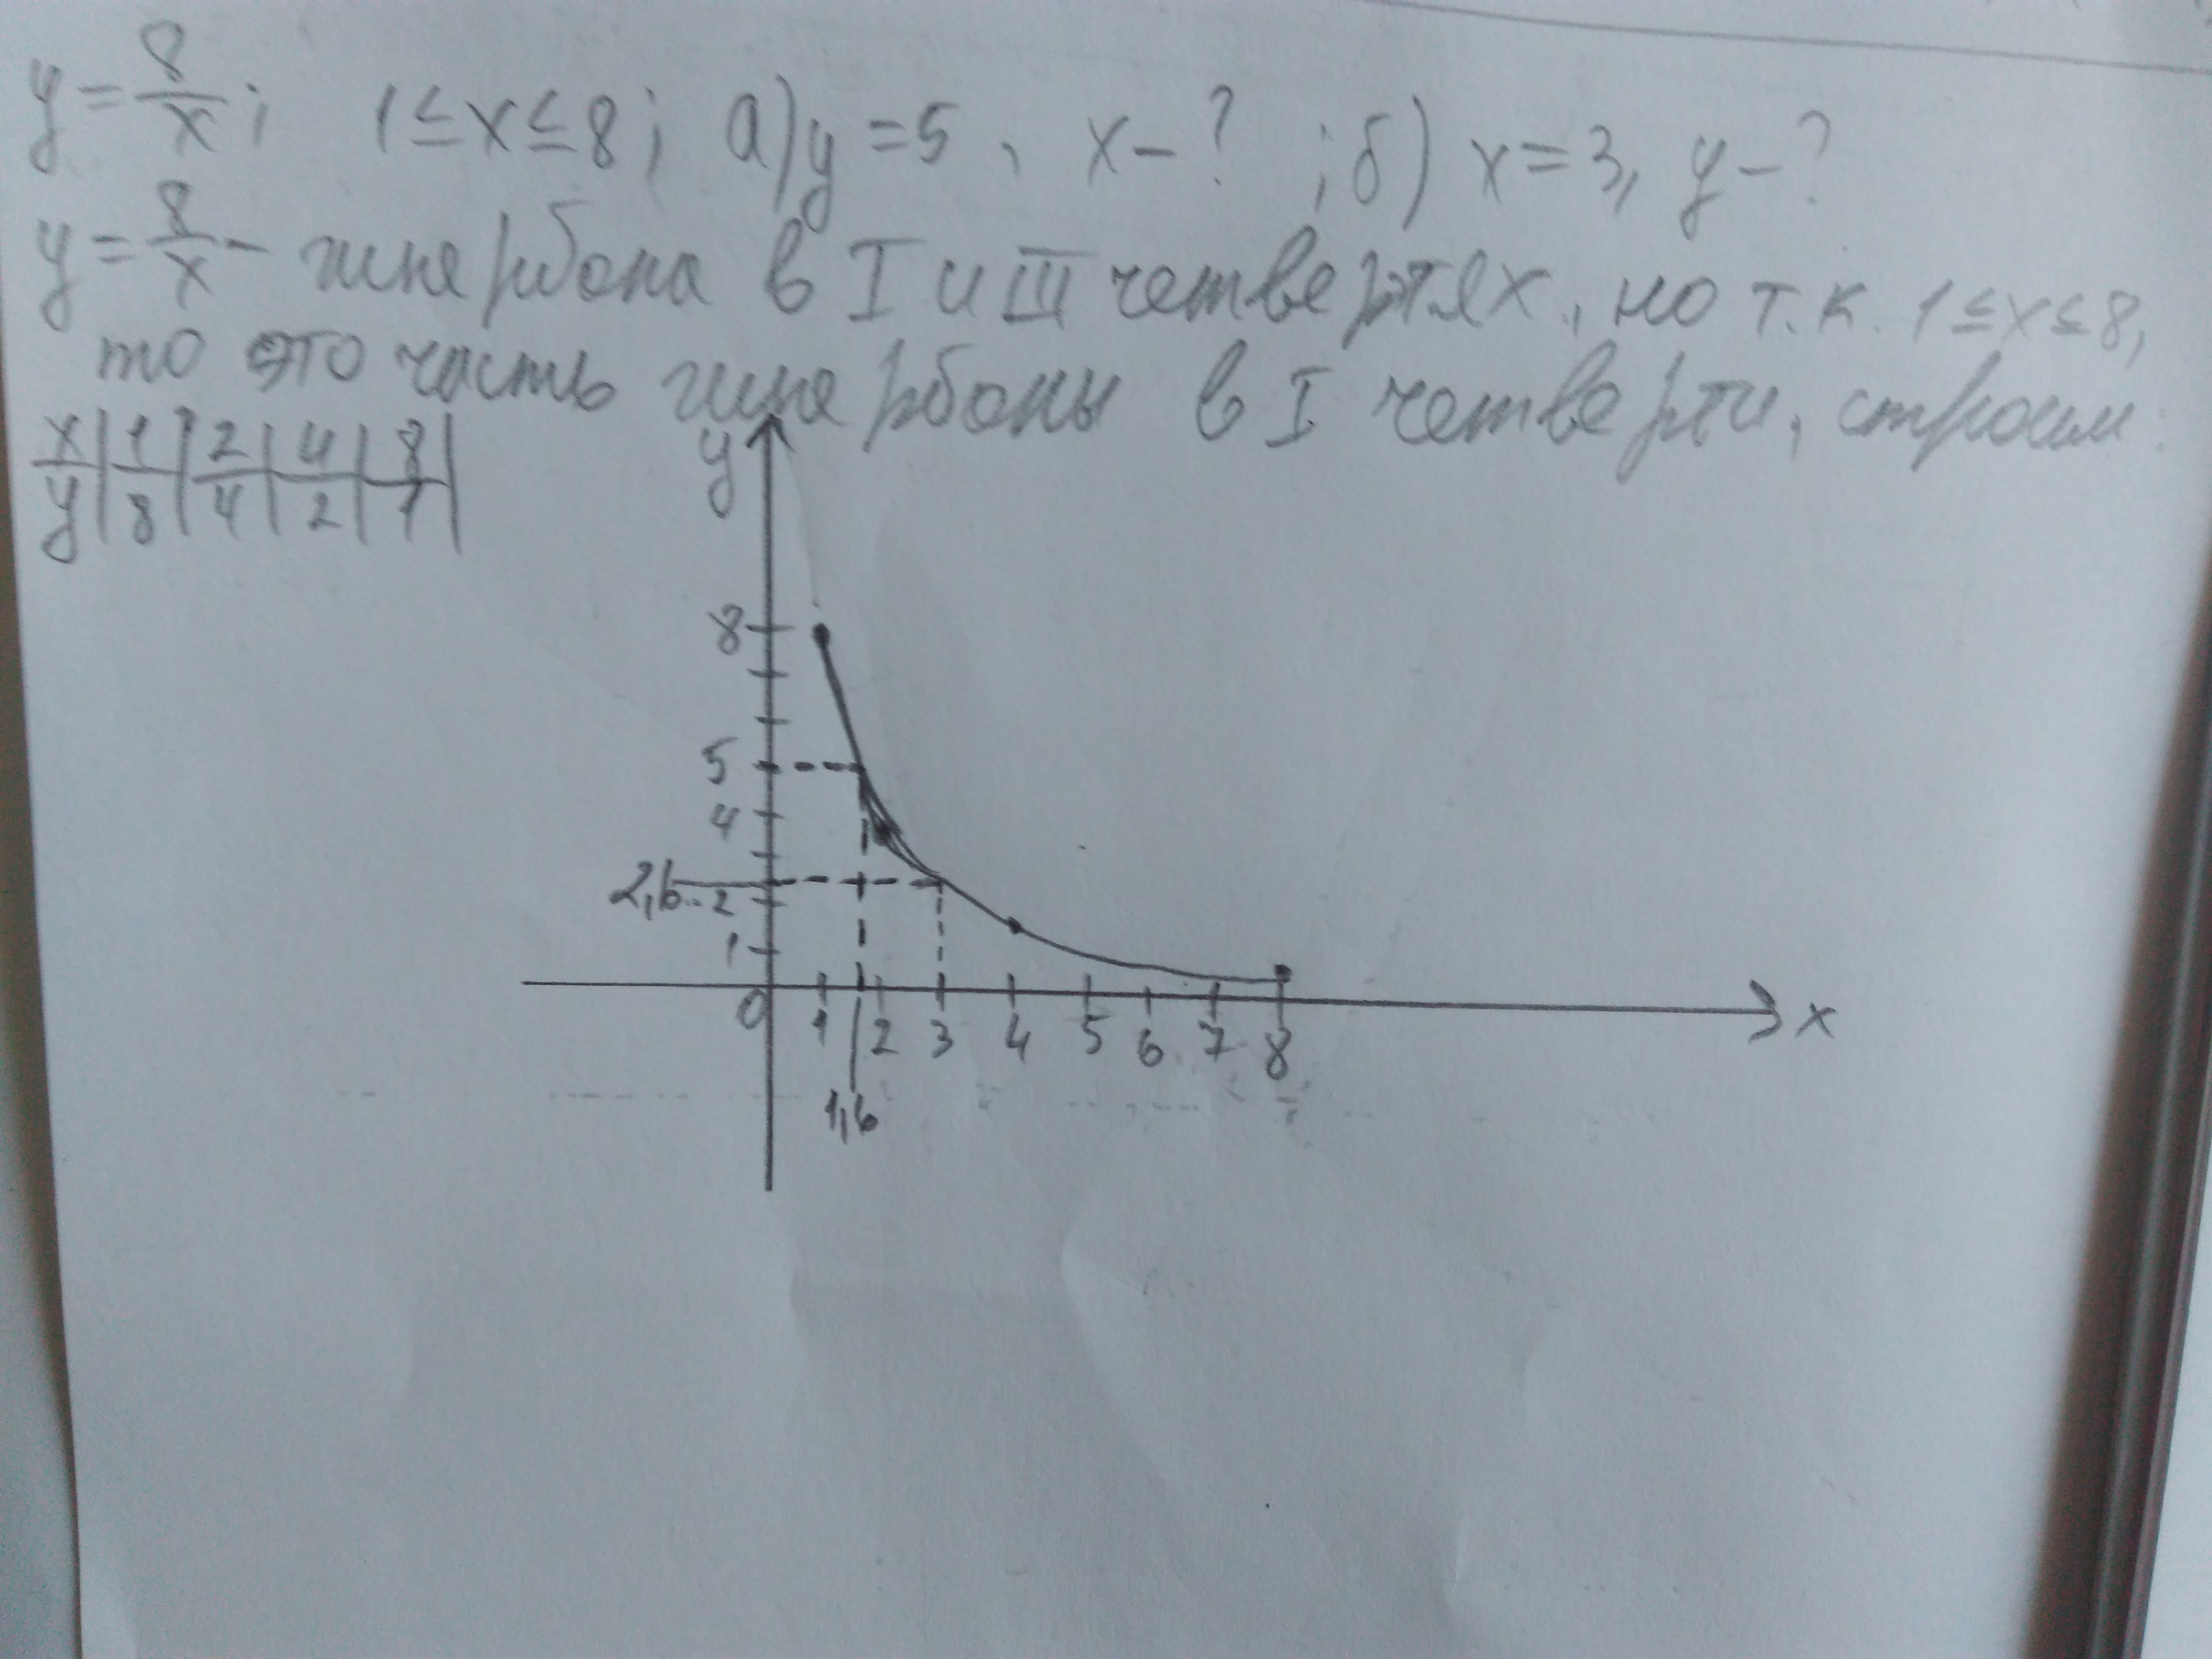 y = 8/x; 1 ≤ x ≤ 8; а) y = 5, x - ?; б) x = 3, y - ?
y = 8/x - гипербола в I и III четвертях, но т.к. 1 ≤ x ≤ 8,
то это часть гиперболы в I четверти, строим:
x | 1 | 2 | 4 | 8 |
y | 8 | 4 | 2 | 1 |
y
8
5
4
2,6.. 2
1
0 1 2 3 4 5 6 7 8 x
1,6